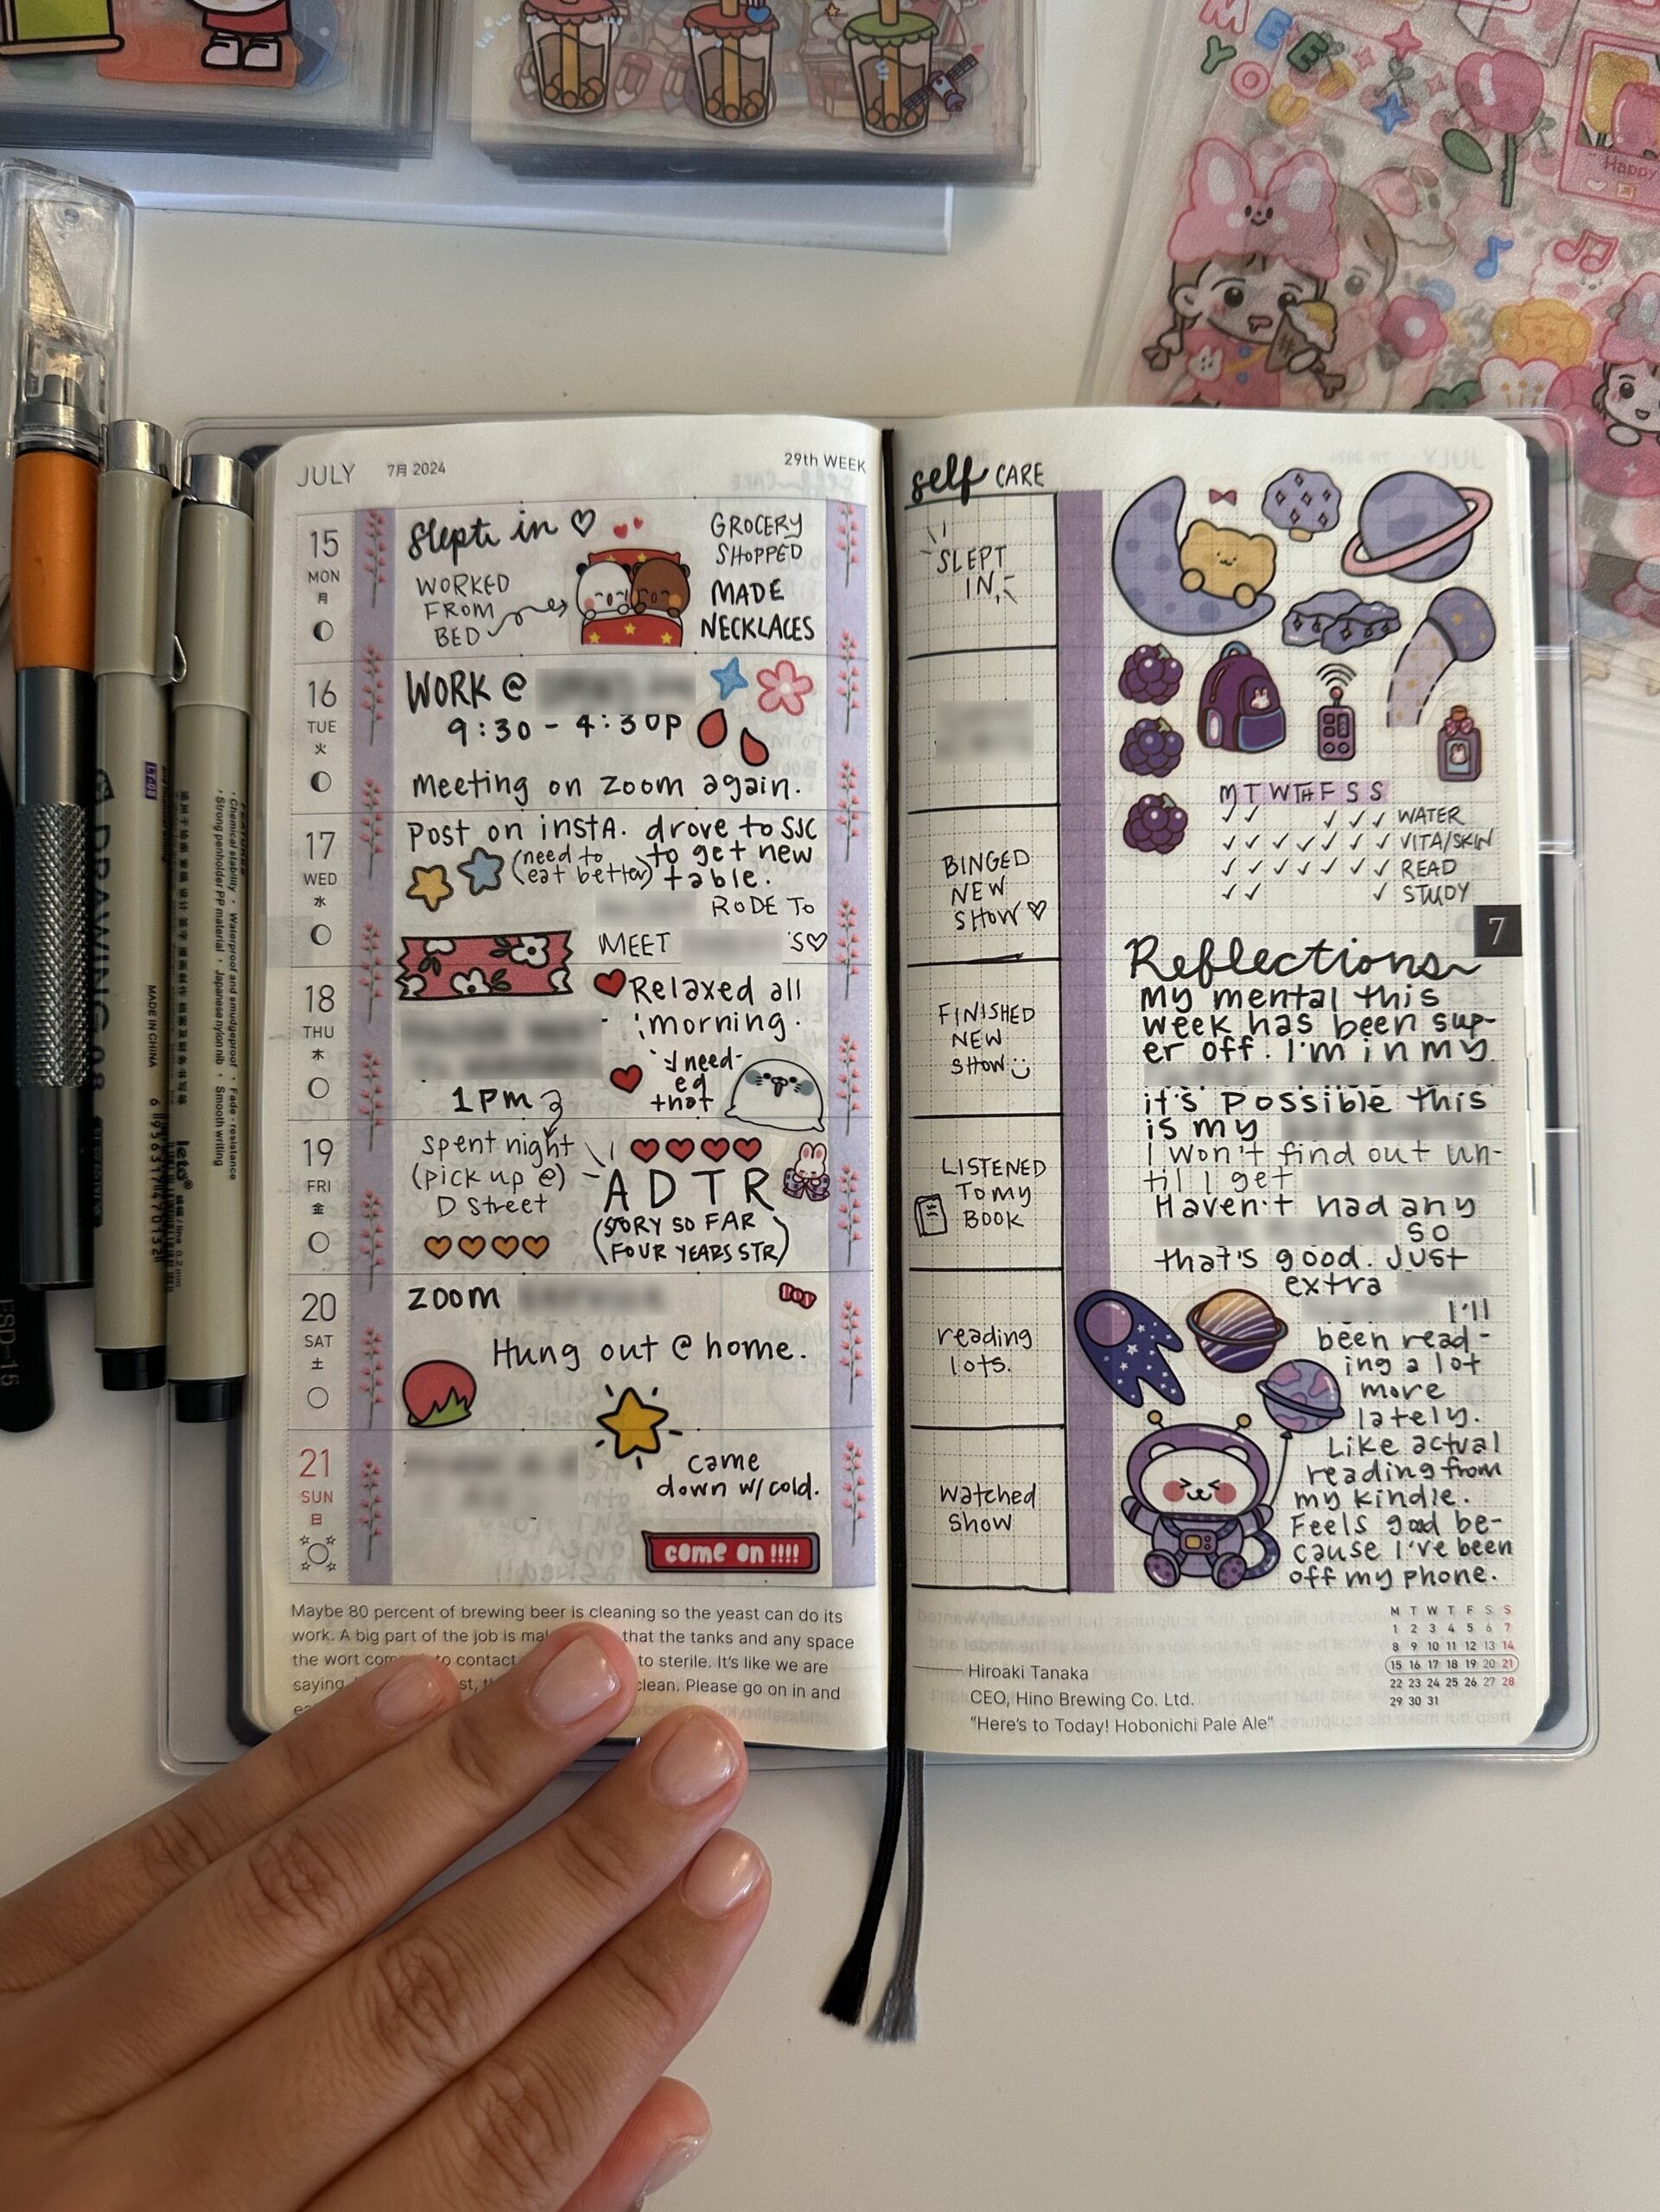 MEE
YOU
Happy
JULY 7月 2024 29th WEEK
15
MON
月
slept in ♡
WORKED
FROM
BED
GROCERY
SHOPPED
MADE
NECKLACES
16
TUE
火
WORK @
9:30 - 4:30p
meeting on zoom again.
17
WED
水
Post on instA. drove to SJC
(need to
eat better)
to get new
table.
RODE TO
MEET 'S♡
18
THU
木
Relaxed all
morning.
I need-
ed
that
1pm
19
FRI
金
spent night
(pick up @)
D Street
ADTR
(STORY SO FAR
FOUR YEARS STR)
20
SAT
土
zoom
Boy
Hung out @ home.
21
SUN
日
came
down w/ cold.
come on !!!!
Maybe 80 percent of brewing beer is cleaning so the yeast can do its
work. A big part of the job is that the tanks and any space
the wort to contact to sterile. It's like we are
saying, clean. Please go on in and
self CARE
SLEPT
IN
BINGED
NEW
SHOW ♡
FINISHED
NEW
SHOW
LISTENED
TO my
BOOK
reading
lots.
watched
show
M T W TH F S S
✓ ✓ ✓ ✓ ✓ WATER
✓ ✓ ✓ ✓ ✓ ✓ ✓ VITA/SKIN
✓ ✓ ✓ ✓ ✓ ✓ ✓ READ
✓ ✓ ✓ STUDY
7
Reflections
my mental this
week has been sup-
er off. I'm in my
it's possible this
is my
I won't find out un-
till I get
Haven't had any
so
that's good. Just
extra
I'll
been read-
ing a lot
more
lately.
Like actual
reading from
my kindle.
Feels good be-
cause I've been
off my phone.
M T W T F S S
1 2 3 4 5 6 7
8 9 10 11 12 13 14
15 16 17 18 19 20 21
22 23 24 25 26 27 28
29 30 31
Hiroaki Tanaka
CEO, Hino Brewing Co. Ltd.
"Here's to Today! Hobonichi Pale Ale"
DRAWING 0.8
MADE IN CHINA
6 956317 417013211
FEATURES
・Chemical stability ・Waterproof and smudgeproof ・Fade-resistance
・Strong penholder PP material ・Japanese nylon nib ・Smooth writing